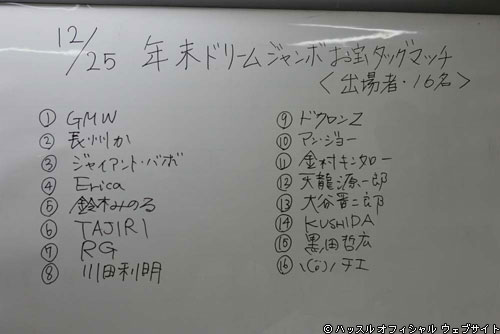 12/25 年末ドリームジャンボお宝タッグマッチ
＜出場者・16名＞
① GMW
② 長州か
③ ジャイアント・バボ
④ Erica
⑤ 鈴木みのる
⑥ TAJIRI
⑦ RG
⑧ 川田利明
⑨ ドクロンZ
⑩ アン・ジョー
⑪ 金村キンタロー
⑫ 天龍源一郎
⑬ 大谷晋二郎
⑭ KUSHIDA
⑮ 黒田哲広
⑯ \(◎o◎)/チエ
© ハッスル オフィシャル ウェブサイト